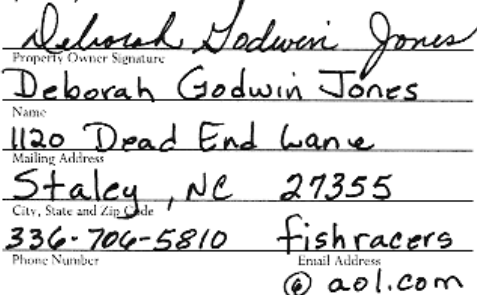 Deborah Godwin Jones
Property Owner Signature
Deborah Godwin Jones
Name
1120 Dead End Lane
Mailing Address
Staley, NC 27355
City, State and Zip Code
336-706-5810 fishracers
Phone Number Email Address
@ aol.com